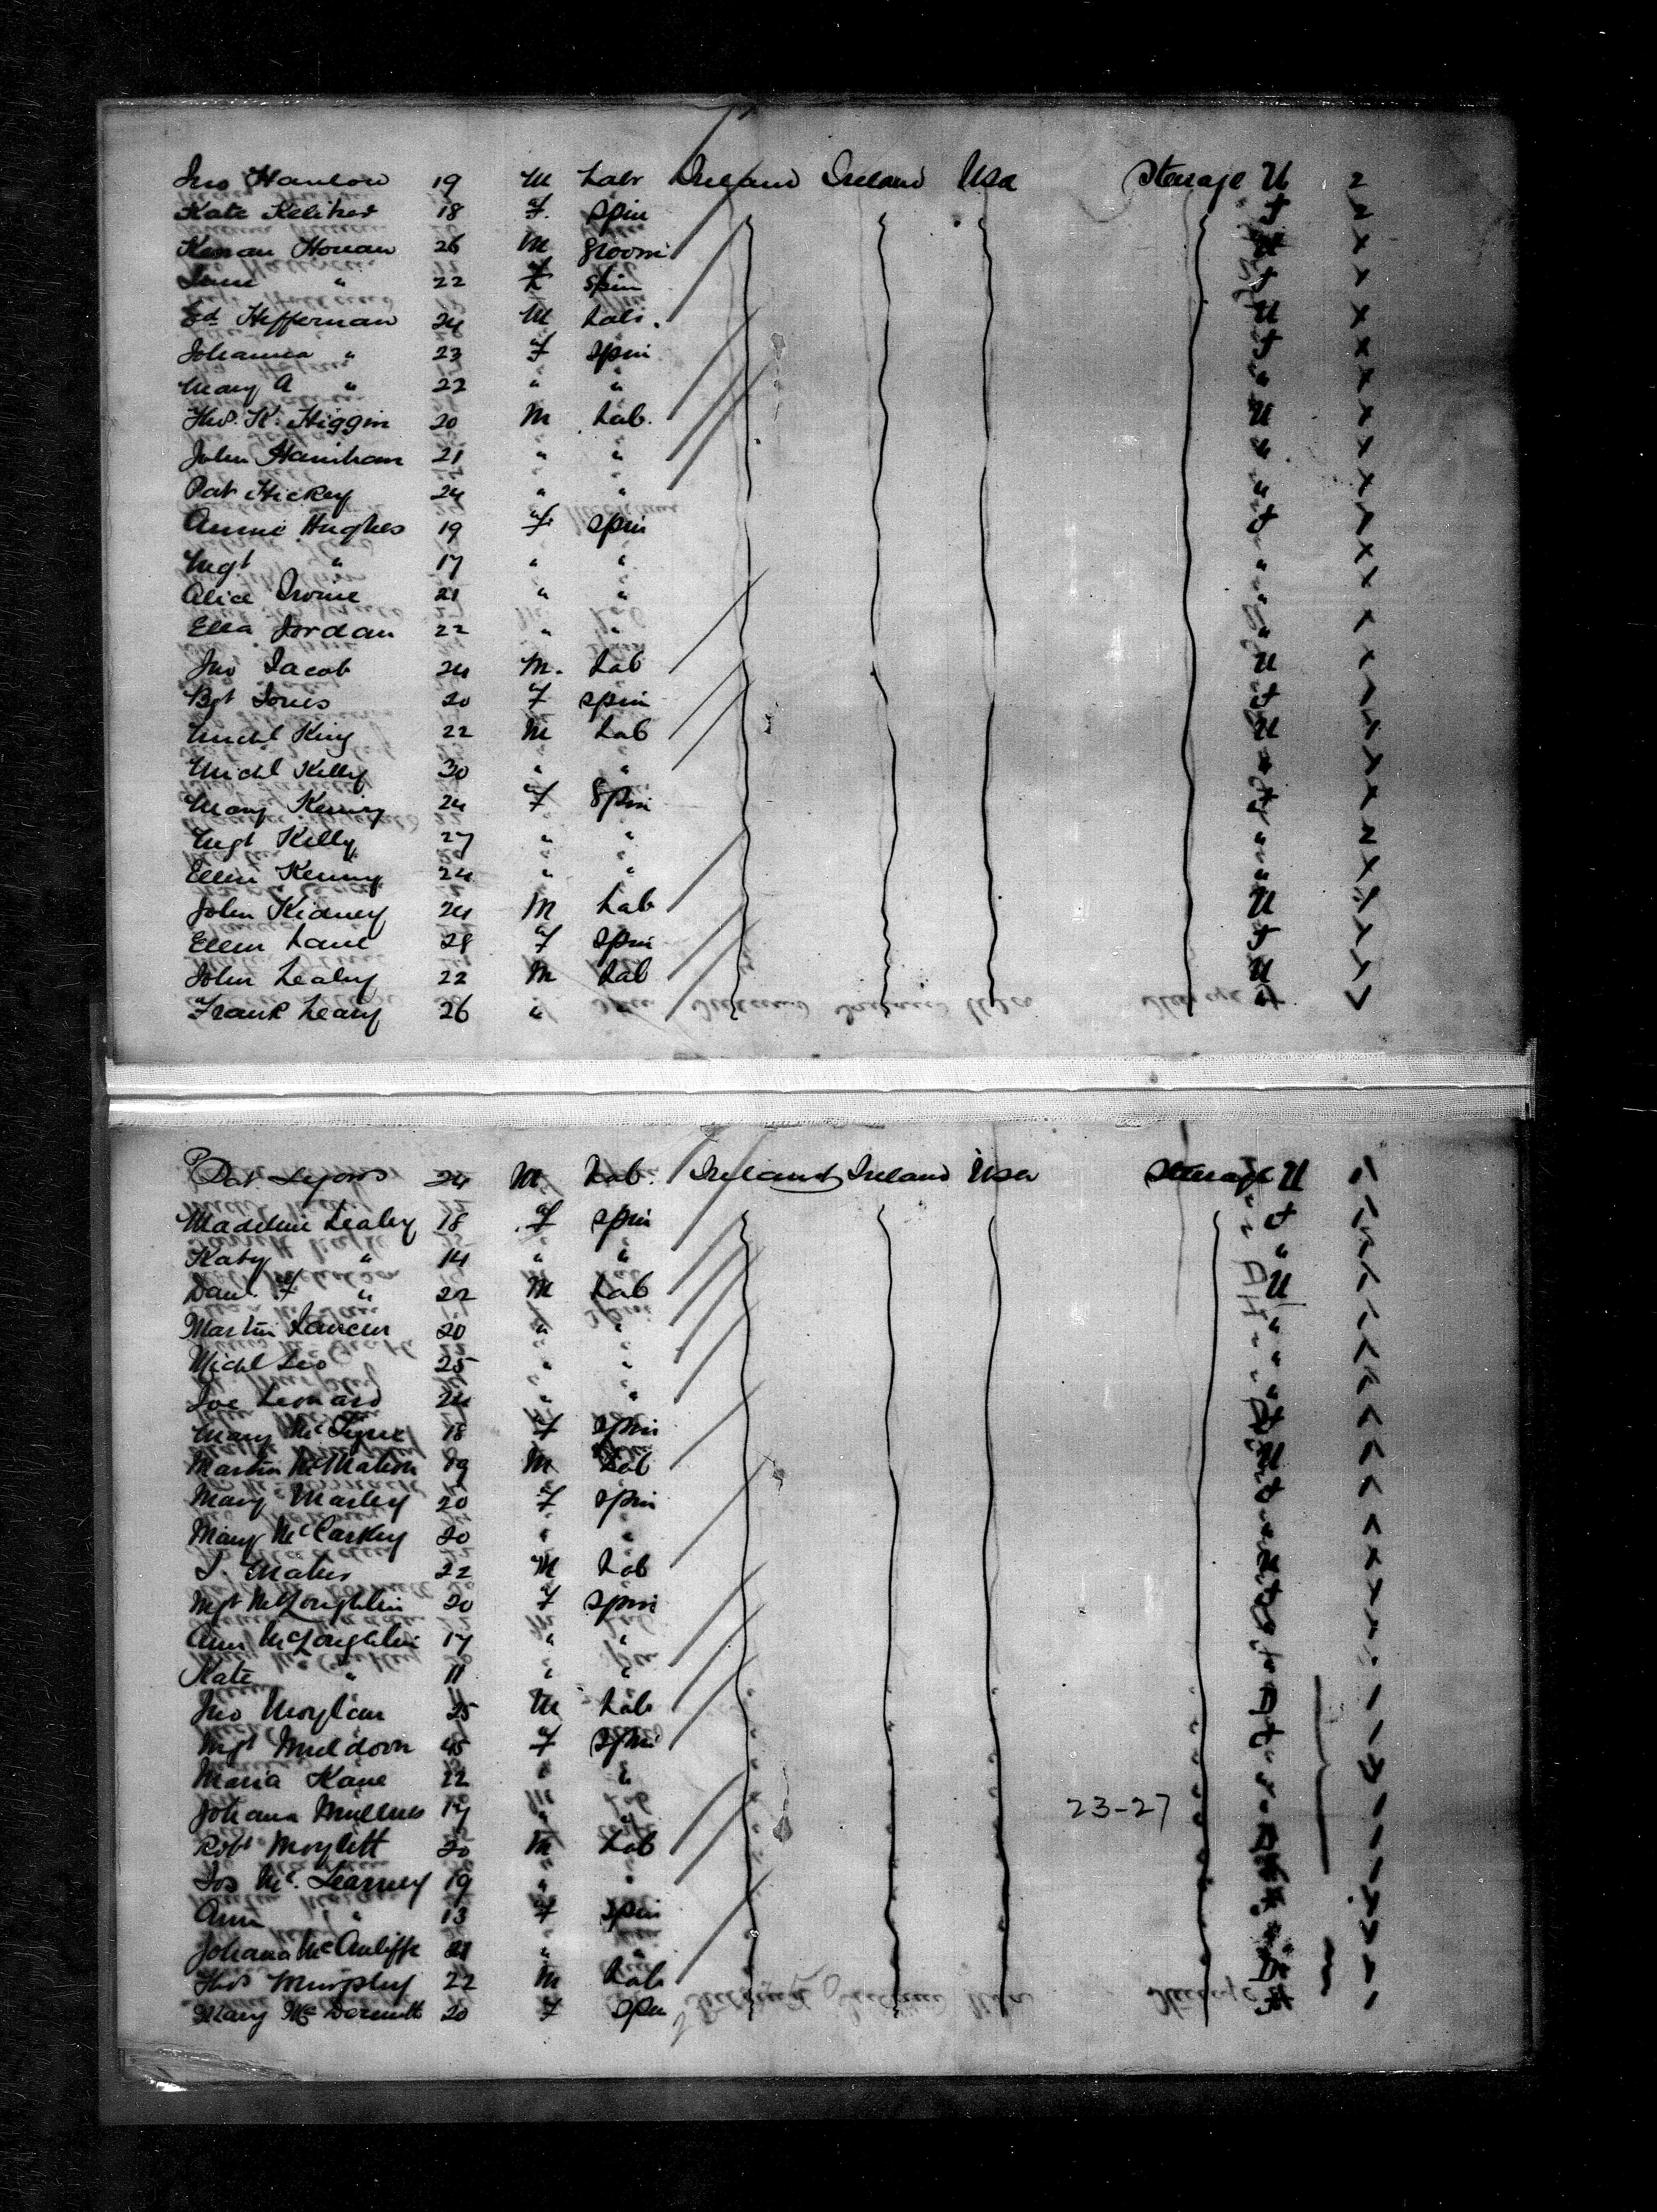 Jno Hanlon 19 M Labr Ireland Ireland Usa Steerage U
Kate Keliher 18 F. Spin
Kieran Honan 26 M groom
Jane " 22 F Spin
Ed. Heffernan 24 M Labr.
Johanna " 23 F Spin
Mary A " 22 " "
Thos. K. Higgin 20 M Lab.
John Hanihan 21 " "
Pat Hickey 24 " "
Annie Hughes 19 F. Spin
Mgt " 17 " "
Alice Irvine 21 " "
Ella Jordan 22 " "
Jno Jacob 24 M. Lab
Bgt Jones 20 F Spin
Michl King 22 M Lab
Michl Kelly 30 " "
Mary 24 F Spin
Mgt Kelly 27 " "
Ellen Kenny 24 " "
John Kidney 24 M Lab
Ellen Lane 28 F Spin
John Leahy 22 M Lab
Frank Leary 26 "
Pat Lyons 24 M Lab. Ireland Ireland Usa Steerage U
Madeline Leahy 18 F Spin
Katy " 14 " "
Danl. F " 22 M Lab
Martin 20 " "
Michl Leo 25 " "
Joe Leonard 24 " "
Mary 18 F Spin
Martin McMahon 19 M Lab
Mary Marley 20 F Spin
Mary McCarthy 20 " "
J. Maher 22 M Lab
Mgt McLoughlin 20 F Spin
Ann McLoughlin 17 " "
Kate " 11 " "
Jno Moylan 25 M Lab
Mgt Muldoon 45 F Spin
Maria Kane 22 " "
Johana Mullins 17 " " 23-27
Robt Moylett 20 M Lab
Jos Mc. Learney 19 " "
Ann " 13 F Spin
Johana McAuliffe 21 " "
Thos Murphy 22 M Lab
Mary McDermott 20 F Spin